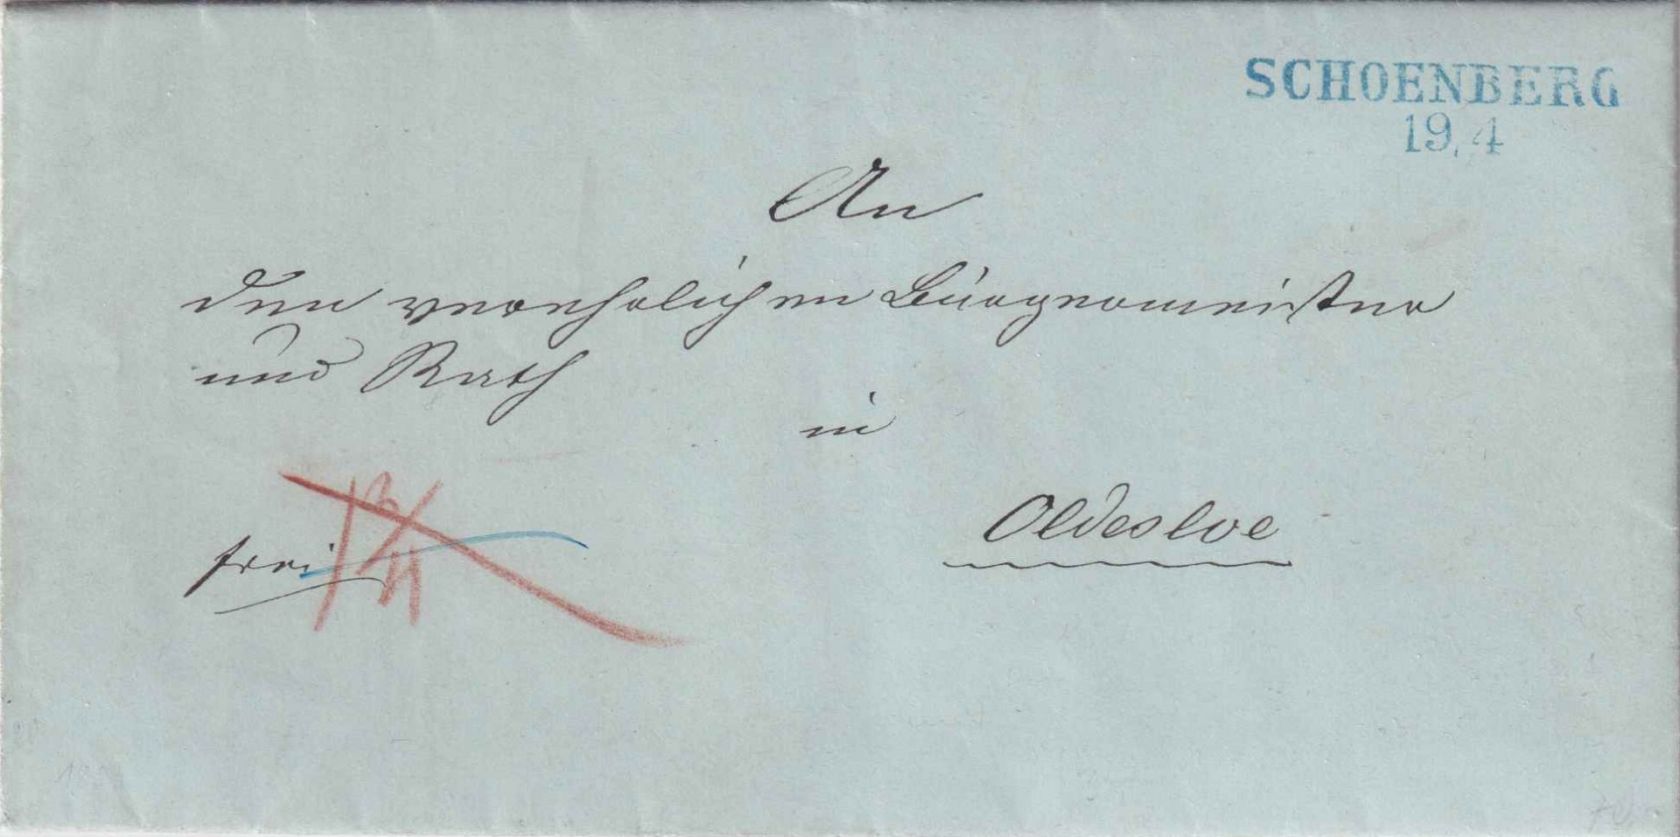 SCHOENBERG
19. 4
An
den verehrlichen Bürgermeister
und Rath
in
Oldesloe
frei